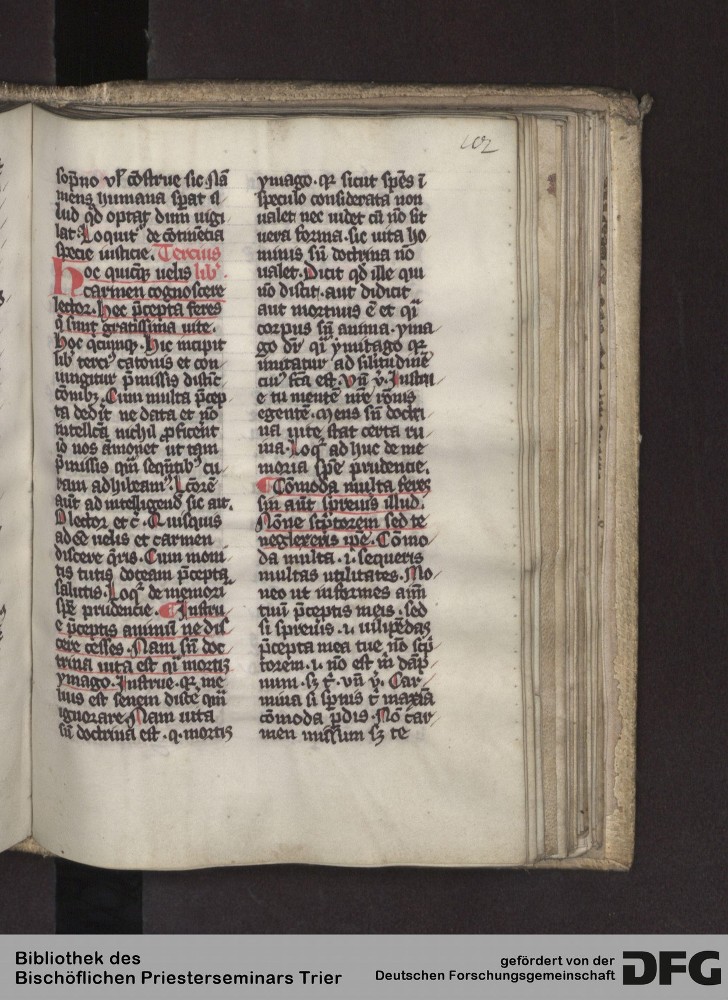 102
sopno vl̕ cōstrue sic Nā
mens humana sperat il
lud qd optat dum uigi
lat. Loquit̕ de cōtinēcia
specie iusticie. Tercius
hoc quicūqꝫ uelis lib̕.
carmen cognoscere
lector. hec p̄cepta feres
q̄ sunt gratissima uite.
hoc qcūnqꝫ. hic incipit
lib̕ terci᷒ catonis et con
iungitur p̄missis distīc
tōnibꝫ. Cum multa p̄cep
ta dedit ne data et nō
intellcā nichil ꝓficerent
iō nos āmonet ut tam
p̄missis qm̄ seqn̄tibꝫ cu
ram adhibeam᷒. Lcōrē
aūt ad intelligend̄ sic aut.
O lector et c̄. Quisquis
ad ēe uelis et carmen
discere q̄ris. Cum moni
tis tutis doceam p̄cepta
salutis. Loqt̕ de memori
spē prudencie. Instru
e p̄ceptis animū ne dis
cere cesses. Nam sn̄ doc
trina uita est qi̕ mortis
ymago. Instrue. qꝛ me
lius est senem disce qm̄
ignorare. Nam uita
sn̄ doctrina est. q. mortis
ymago. qꝛ sicut spēs ī
speculo considerata non
ualet nec uidet cū nō sit
uera forma. sic uita ho
minis sn̄ doctrina nō
ualet. Dicit qd ille qui
nō discit. aut didicit
aut mortuus ē et qi̕
corpus sn̄ anima. yma
go dr̄ qi̕ ymitago qꝛ
imitatur ad silitudinē
cui᷒ fcā est. Vn̄ v̕. Instru
e tu mente nr̄e rōnis
egentē. Mens sn̄ doctri
na uite stat certa ru
ina. Loqt̕ ad huc de me
moria spē prudencie.
Cōmoda multa feres
sin aūt spreuis illud.
Nōne scp̄torem sed te
neglexeris ip̄e. Cōmo
da multa. i. sequeris
multas utilitates. Mo
neo ut informes aīm
tuū p̄ceptis meis. sed
si spreuis. i. uilipēdas
p̄cepta mea tue nō scp̄
torem. i. nō est m̄ dāp
num. sꝫ t̕. vn̄ v̕. Car
mina si sp̄nis t̕ maxīa
cōmoda p̄dis. Nō car
men missum sꝫ te
Bibliothek des
Bischöflichen Priesterseminars Trier
gefördert von der
Deutschen Forschungsgemeinschaft
DFG